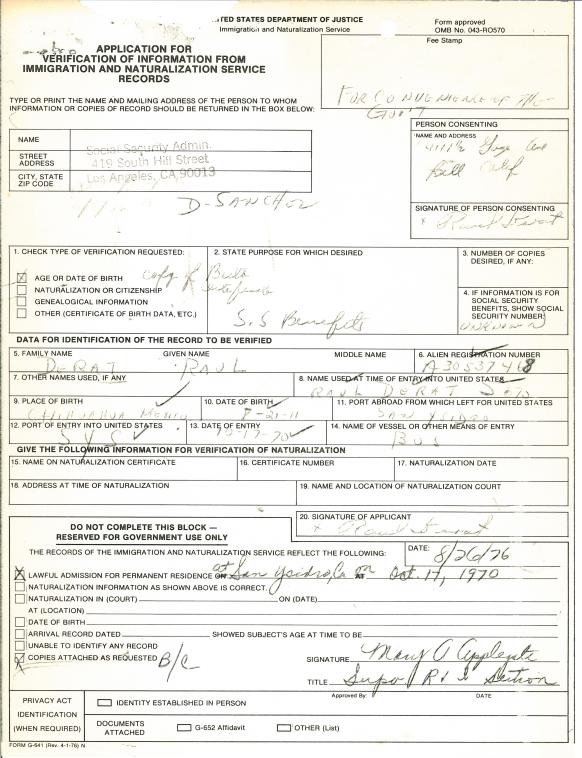 UNITED STATES DEPARTMENT OF JUSTICE
Immigration and Naturalization Service
Form approved
OMB No. 043-RO570
APPLICATION FOR
VERIFICATION OF INFORMATION FROM
IMMIGRATION AND NATURALIZATION SERVICE
RECORDS
Fee Stamp
FOR CONVENIENCE OF THE
GOV'T
TYPE OR PRINT THE NAME AND MAILING ADDRESS OF THE PERSON TO WHOM
INFORMATION OR COPIES OF RECORD SHOULD BE RETURNED IN THE BOX BELOW:
PERSON CONSENTING
NAME AND ADDRESS
4111½ Gage Ave
Bell Calif
SIGNATURE OF PERSON CONSENTING
x
NAME
STREET
ADDRESS
CITY, STATE
ZIP CODE
Social Security Admin.
419 South Hill Street
Los Angeles, CA 90013
D-SANCHEZ
1. CHECK TYPE OF VERIFICATION REQUESTED:
AGE OR DATE OF BIRTH
NATURALIZATION OR CITIZENSHIP
GENEALOGICAL INFORMATION
OTHER (CERTIFICATE OF BIRTH DATA, ETC.)
copy of Birth
Certificate
2. STATE PURPOSE FOR WHICH DESIRED
S.S Benefits
3. NUMBER OF COPIES
DESIRED, IF ANY:
4. IF INFORMATION IS FOR
SOCIAL SECURITY
BENEFITS, SHOW SOCIAL
SECURITY NUMBER:
UNKNOWN
DATA FOR IDENTIFICATION OF THE RECORD TO BE VERIFIED
5. FAMILY NAME GIVEN NAME MIDDLE NAME 6. ALIEN REGISTRATION NUMBER
DERAT RAUL A30537468
7. OTHER NAMES USED, IF ANY 8. NAME USED AT TIME OF ENTRY INTO UNITED STATES
RAUL DERAT
9. PLACE OF BIRTH 10. DATE OF BIRTH 11. PORT ABROAD FROM WHICH LEFT FOR UNITED STATES
CHIHUAHUA Mexico 8-21-11 SAN YSIDRO
12. PORT OF ENTRY INTO UNITED STATES 13. DATE OF ENTRY 14. NAME OF VESSEL OR OTHER MEANS OF ENTRY
SYS 10-17-70 BUS
GIVE THE FOLLOWING INFORMATION FOR VERIFICATION OF NATURALIZATION
15. NAME ON NATURALIZATION CERTIFICATE 16. CERTIFICATE NUMBER 17. NATURALIZATION DATE
18. ADDRESS AT TIME OF NATURALIZATION 19. NAME AND LOCATION OF NATURALIZATION COURT
20. SIGNATURE OF APPLICANT
x
DO NOT COMPLETE THIS BLOCK —
RESERVED FOR GOVERNMENT USE ONLY
THE RECORDS OF THE IMMIGRATION AND NATURALIZATION SERVICE REFLECT THE FOLLOWING:
DATE:
8/26/76
LAWFUL ADMISSION FOR PERMANENT RESIDENCE ON at San Ysidro, Ca on AT Oct. 17, 1970
NATURALIZATION INFORMATION AS SHOWN ABOVE IS CORRECT.
NATURALIZATION IN (COURT) ON (DATE)
AT (LOCATION)
DATE OF BIRTH
ARRIVAL RECORD DATED SHOWED SUBJECT'S AGE AT TIME TO BE
UNABLE TO IDENTIFY ANY RECORD
COPIES ATTACHED AS REQUESTED B/C
SIGNATURE Mary A
TITLE Supv R & I Section
Approved By: DATE
PRIVACY ACT
IDENTIFICATION
(WHEN REQUIRED)
IDENTITY ESTABLISHED IN PERSON
DOCUMENTS
ATTACHED
G-652 Affidavit
OTHER (List)
FORM G-641 (Rev. 4-1-76) N